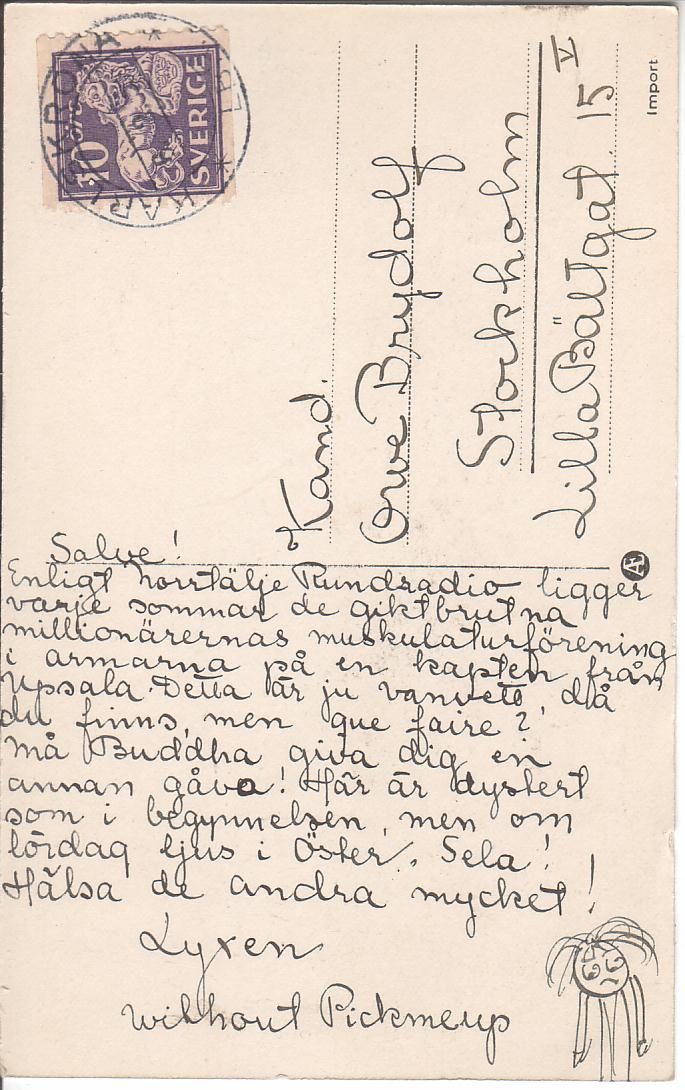 KARLSKRONA
LBR
10
SVERIGE
Import
Kand.
Owe Brydolf
Stockholm
Lilla Bältgat. 15 V
Salve!
Enligt Norrtälje Rundradio ligger
varje sommar de giktbrutna
millionärernas muskulaturförening
i armarna på en kapten från
Upsala. Detta är ju vanvett, då
du finns, men que faire?
Må Buddha giva dig en
annan gåva! Här är dystert
som i begynnelsen, men om
lördag ljus i Öster. Sela!
Hälsa de andra mycket!
Lyxen
without Pickmeup